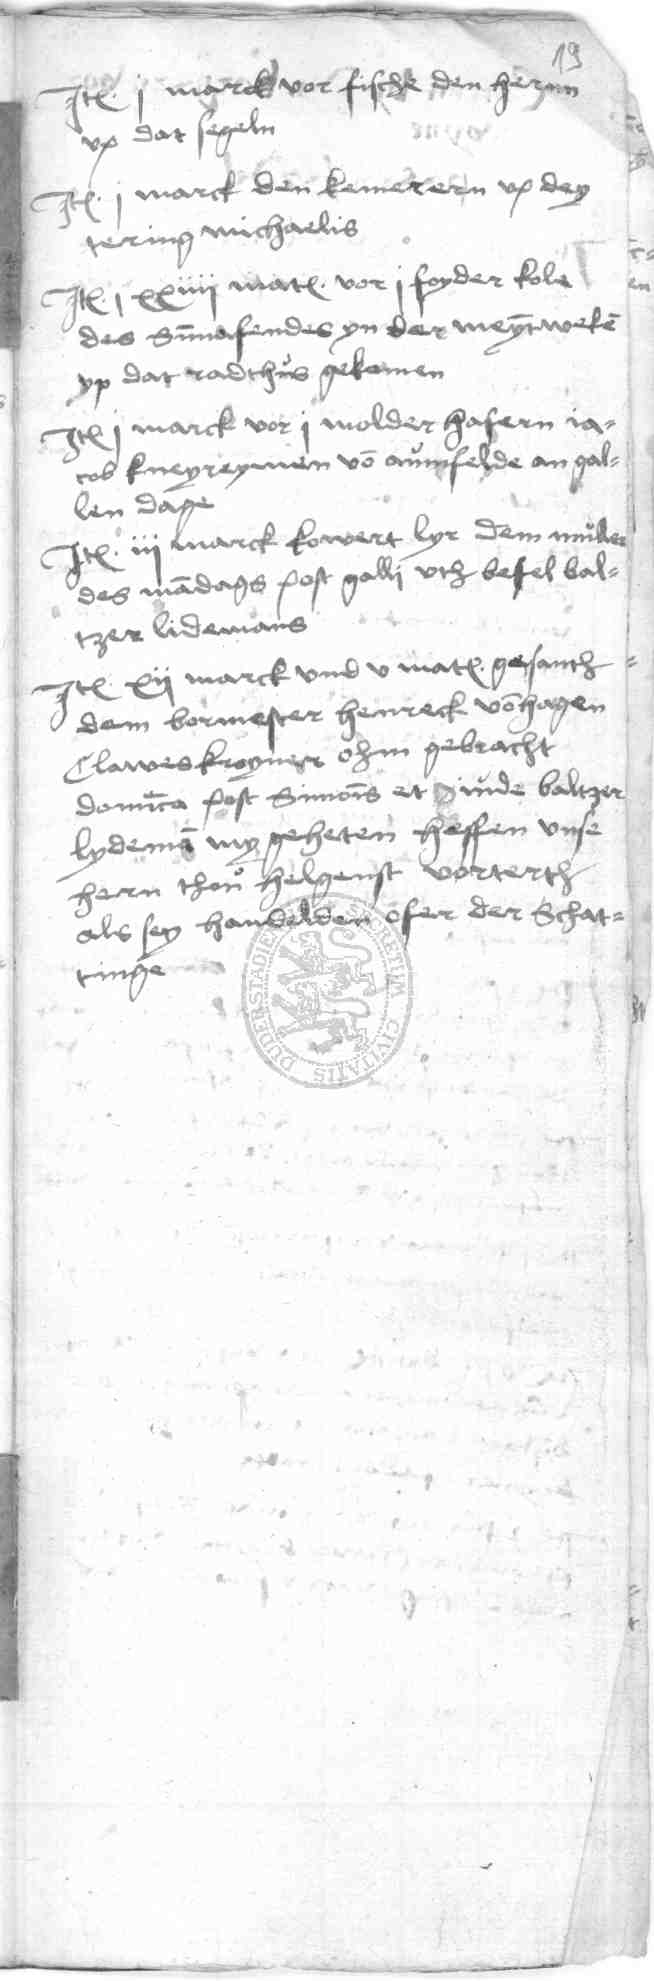 19
Itē. j marck vor fische den hernn
vp dat segeln
Itē. j marck den kemerern vp dey
tering michaelis
Itē. j xxiiij matē. vor j foyder kole
des Sūnafendes yn der meyūtweke
yp dat radthus gekomen
Itē j marck vor j molder hafern ia=
cob kneyreymen vō aumfelde an gal=
len dage
Itē. iij marck kowert lyr dem muller
des mādags post galli vth befel bal=
tzer lidemans
Itē. xij marck vnd v matē. gesanth
dem bormester henreck vōhagen
Claweskroyner ohm gebracht
domīca post Simoīs et jude baltzer
lydemā my geheten heffen vnse
hern thou helgenst vorterth
als sey handelden ofer der Schat=
tinge
SECRETUM CIVITATIS DUDERSTADIE